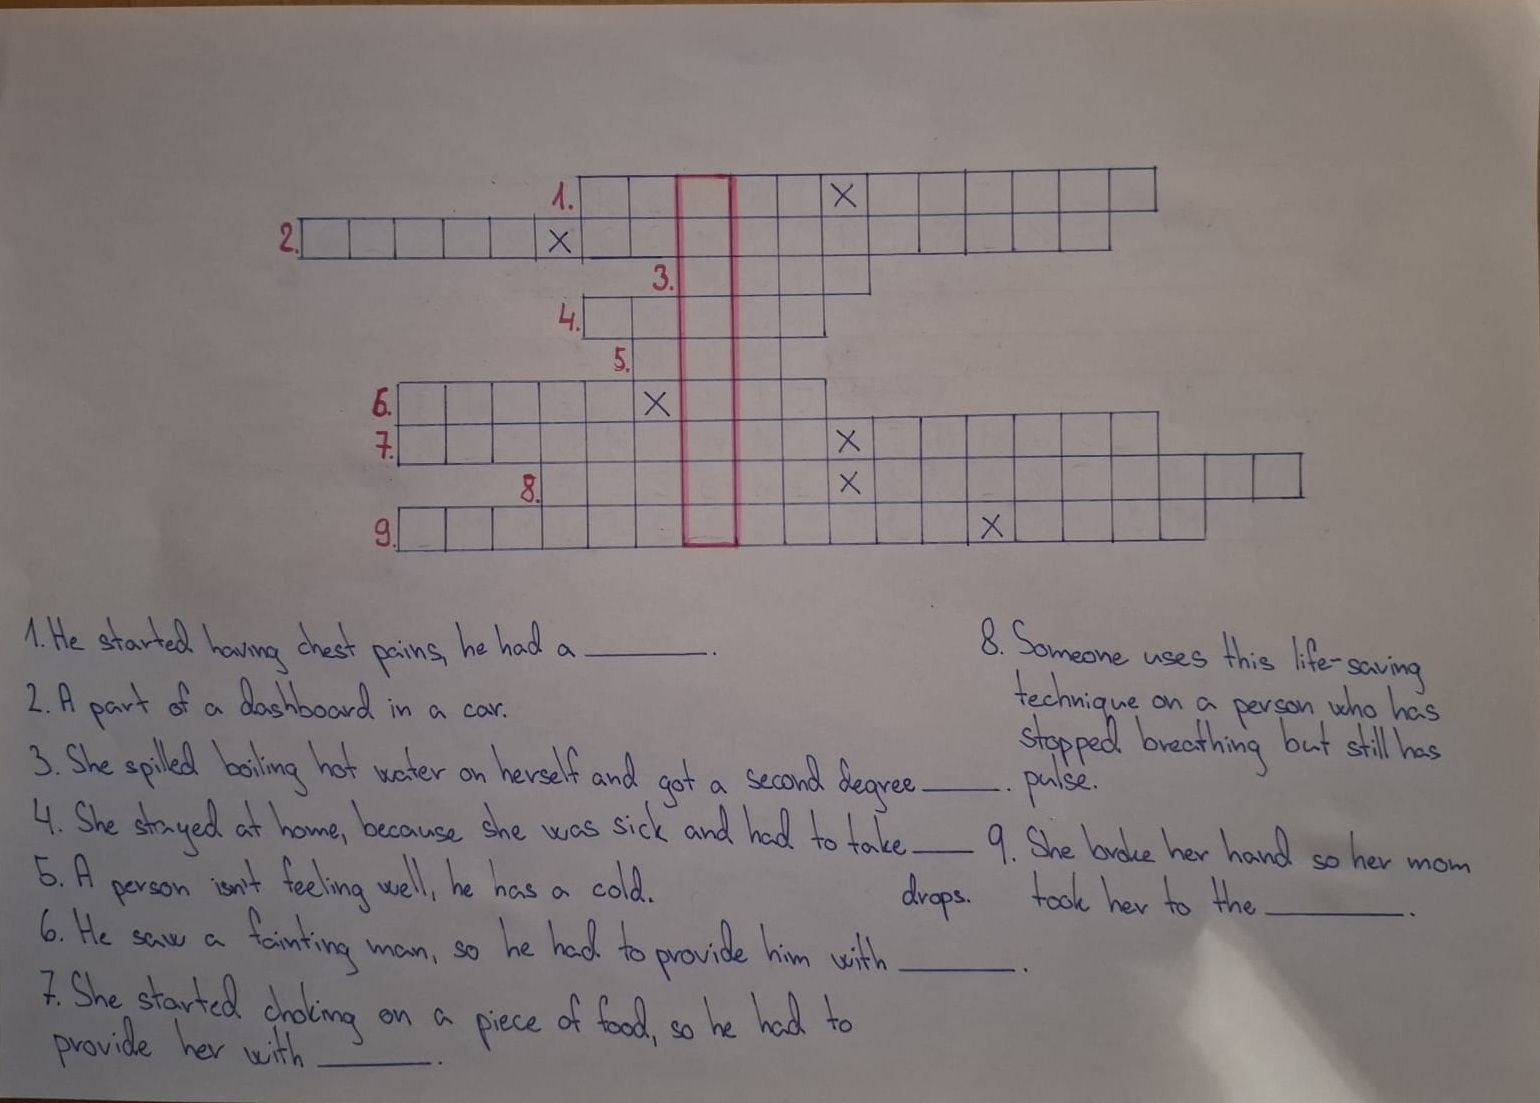 1.
X
2.
X
3.
4.
5.
6.
X
7.
X
8.
X
9.
X
1. He started having chest pains, he had a ______.
2. A part of a dashboard in a car.
3. She spilled boiling hot water on herself and got a second degree ______.
4. She stayed at home, because she was sick and had to take ____
drops.
5. A person isn't feeling well, he has a cold.
6. He saw a fainting man, so he had to provide him with ______.
7. She started choking on a piece of food, so he had to
provide her with ______.
8. Someone uses this life-saving
technique on a person who has
stopped breathing but still has
pulse.
9. She broke her hand so her mom
took her to the ______.